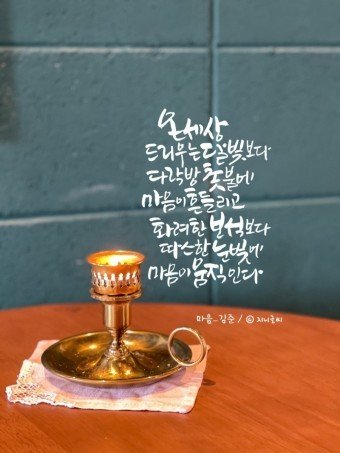 온세상
드리우는 달빛보다
다락방 촛불에
마음이 흔들리고
화려한 보석보다
따스한 눈빛에
마음이 움직인다
마음_김준 / ⓒ 지니글씨